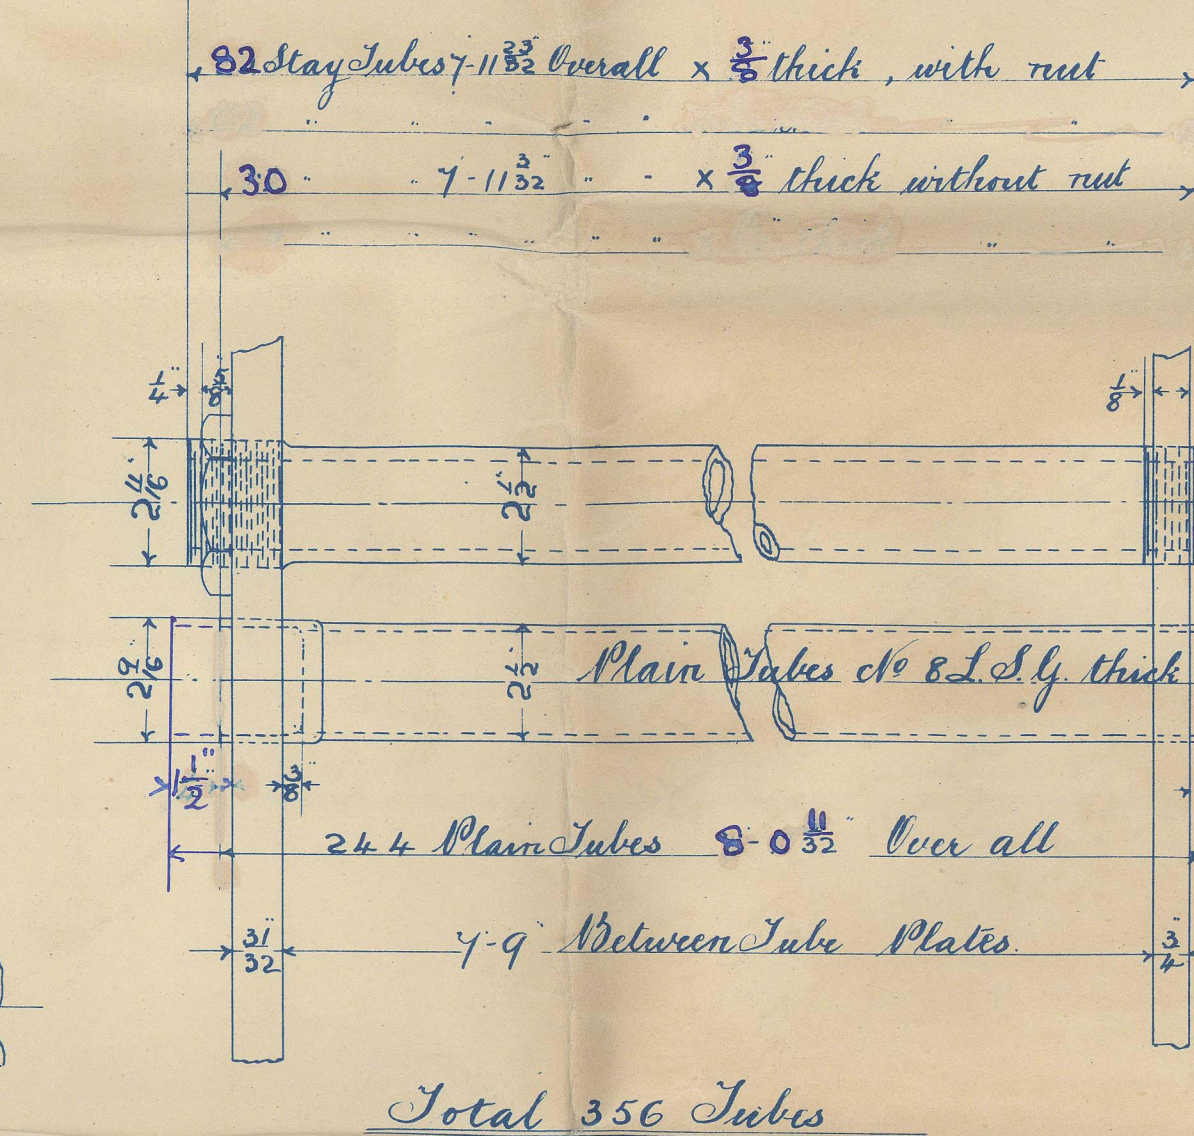 82 Stay Tubes 7-11 23/32" Overall × 3/8" thick, with nut
" " " " " " "
30 " " 7-11 3/32" " " × 3/8" thick without nut
" " " " " " " " "
1/4" 5/8" 1/8"
2 11/16" 2 1/2"
2 9/16" 2 1/2" Plain Tubes No 8 L.S.G. thick
1 1/2" 3/8"
244 Plain Tubes 8-0 11/32" Over all
31/32" 7-9" Between Tube Plates. 3/4"
Total 356 Tubes